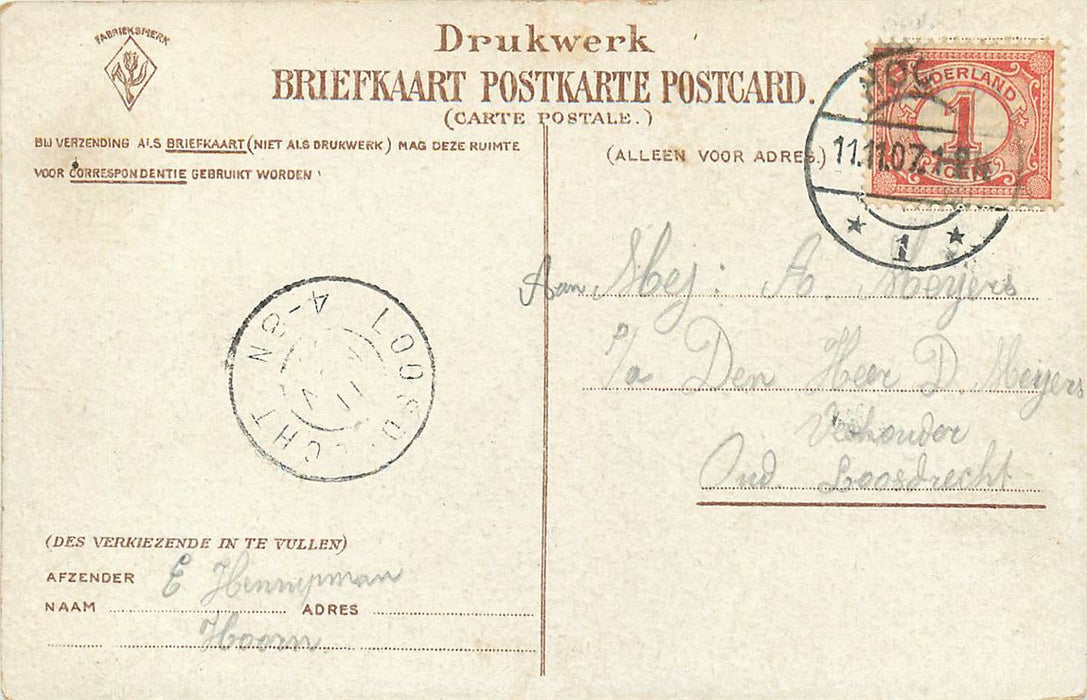 FABRIEKSMERK
Drukwerk
BRIEFKAART POSTKARTE POSTCARD.
(CARTE POSTALE.)
BIJ VERZENDING ALS BRIEFKAART (NIET ALS DRUKWERK) MAG DEZE RUIMTE
VOOR CORRESPONDENTIE GEBRUIKT WORDEN
(ALLEEN VOOR ADRES.)
NEDERLAND
1
CENT
HOO
11.11.07.1
1
Aan Mej: A. Meijers
p/a Den Heer D. Meijers
Veehouder
Oud Loosdrecht
LOOSDRECHT
8-4N
(DES VERKIEZENDE IN TE VULLEN)
AFZENDER E Hennipman
NAAM ADRES
Hoorn